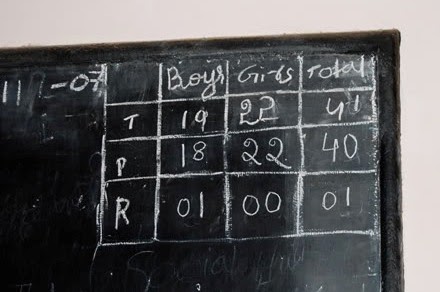 Boys Girls Total
T 19 22 41
P 18 22 40
R 01 00 01